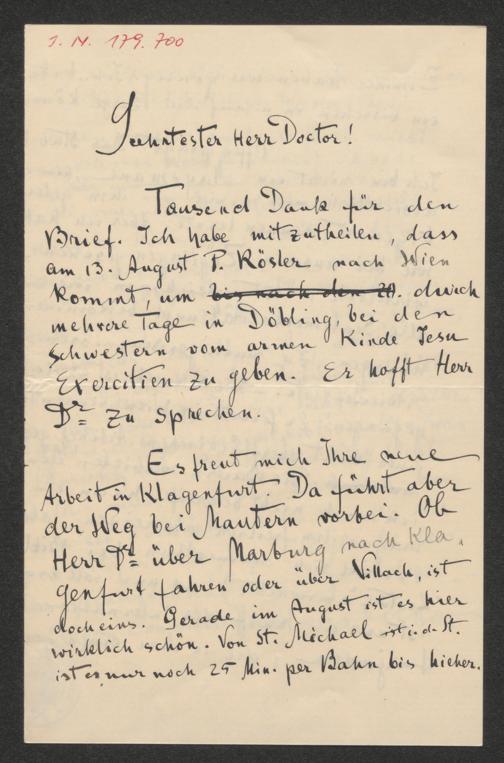 J. N. 179.700
Geehrtester Herr Doctor!
Tausend Dank für den
Brief. Ich habe mitzutheilen, dass
am 13. August P. Rösler nach Wien
kommt, um bis nach den 20. durch
mehrere Tage in Döbling, bei den
Schwestern vom armen Kinde Jesu
Exercitien zu geben. Er hofft Herr
Dr zu sprechen.
Es freut mich Ihre neue
Arbeit in Klagenfurt. Da führt aber
der Weg bei Mautern vorbei. Ob
Herr Dr über Marburg nach Kla-
genfurt fahren oder über Villach, ist
doch eins. Gerade im August ist es hier
wirklich schön. Von St. Michael i. d. St.
ist es nur noch 25 Min. per Bahn bis hieher.